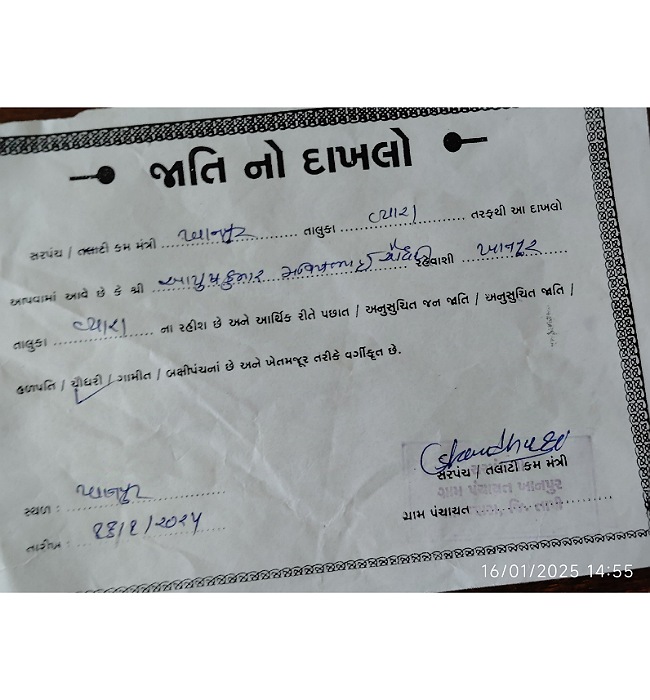 જાતિ નો દાખલો
સરપંચ / તલાટી કમ મંત્રી ખાનપુર તાલુકા વ્યારા તરફથી આ દાખલો
આપવામાં આવે છે કે શ્રી આયુષકુમાર ચૌધરી રહેવાશી ખાનપુર
તાલુકા વ્યારા ના રહીશ છે અને આર્થિક રીતે પછાત / અનુસુચિત જન જાતિ / અનુસુચિત જાતિ /
હળપતિ / ચૌધરી / ગામીત / બક્ષીપંચનાં છે અને ખેતમજૂર તરીકે વર્ગીકૃત છે.
સરપંચ / તલાટી કમ મંત્રી
ગ્રામ પંચાયત ખાનપુર
ગ્રામ પંચાયત
સ્થળ : ખાનપુર
તારીખ :
16/01/2025 14:55